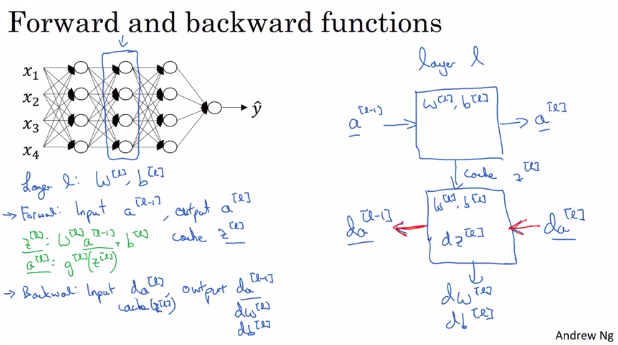 Forward and backward functions
x₁
x₂
x₃
x₄
ŷ
Layer l: W^[l], b^[l]
→ Forward: Input a^[l-1], output a^[l]
z^[l] = W^[l] a^[l-1] + b^[l]
cache z^[l]
a^[l] = g^[l](z^[l])
→ Backward: Input da^[l], output da^[l-1]
cache (z^[l])
dW^[l]
db^[l]
layer l
a^[l-1]
W^[l], b^[l]
a^[l]
cache z^[l]
da^[l-1]
W^[l], b^[l]
dz^[l]
da^[l]
dW^[l]
db^[l]
Andrew Ng